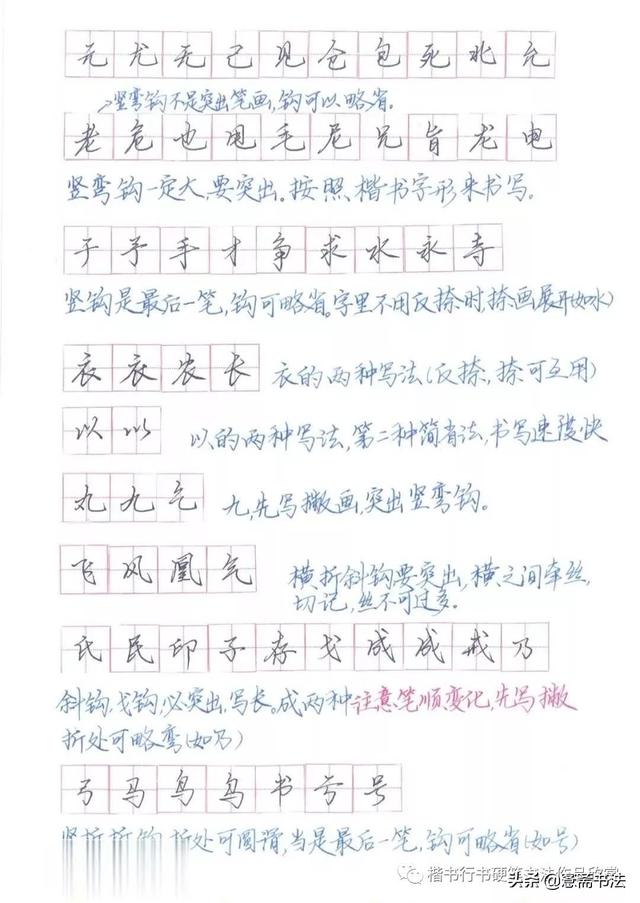 元尤无己见仓包死北允
竖弯钩不是突出笔画,钩可以略省。
老危也甩毛尼兄旨龙电
竖弯钩一定大,要突出。按照楷书字形来书写。
于予手才争求水永寺
竖钩是最后一笔,钩可略省。字里不用反捺时,捺画展开(如水)
衣衣农长 衣的两种写法(反捺,捺可互用)
以以 以的两种写法,第二种简省法,书写速度快
丸九乞 九,先写撇画,突出竖弯钩。
飞风凰气 横折斜钩要突出,横之间牵丝,
切记,丝不可过多。
氏民印子存戈成成戒乃
斜钩,戈钩,必突出,写长。成两种注意笔顺变化,先写撇
折处可略弯(如乃)
弓马鸟乌书亏号
竖折折钩,折处可圆滑,当是最后一笔,钩可略省(如号)
楷书行书硬笔书法作品欣赏
头条@慧斋书法